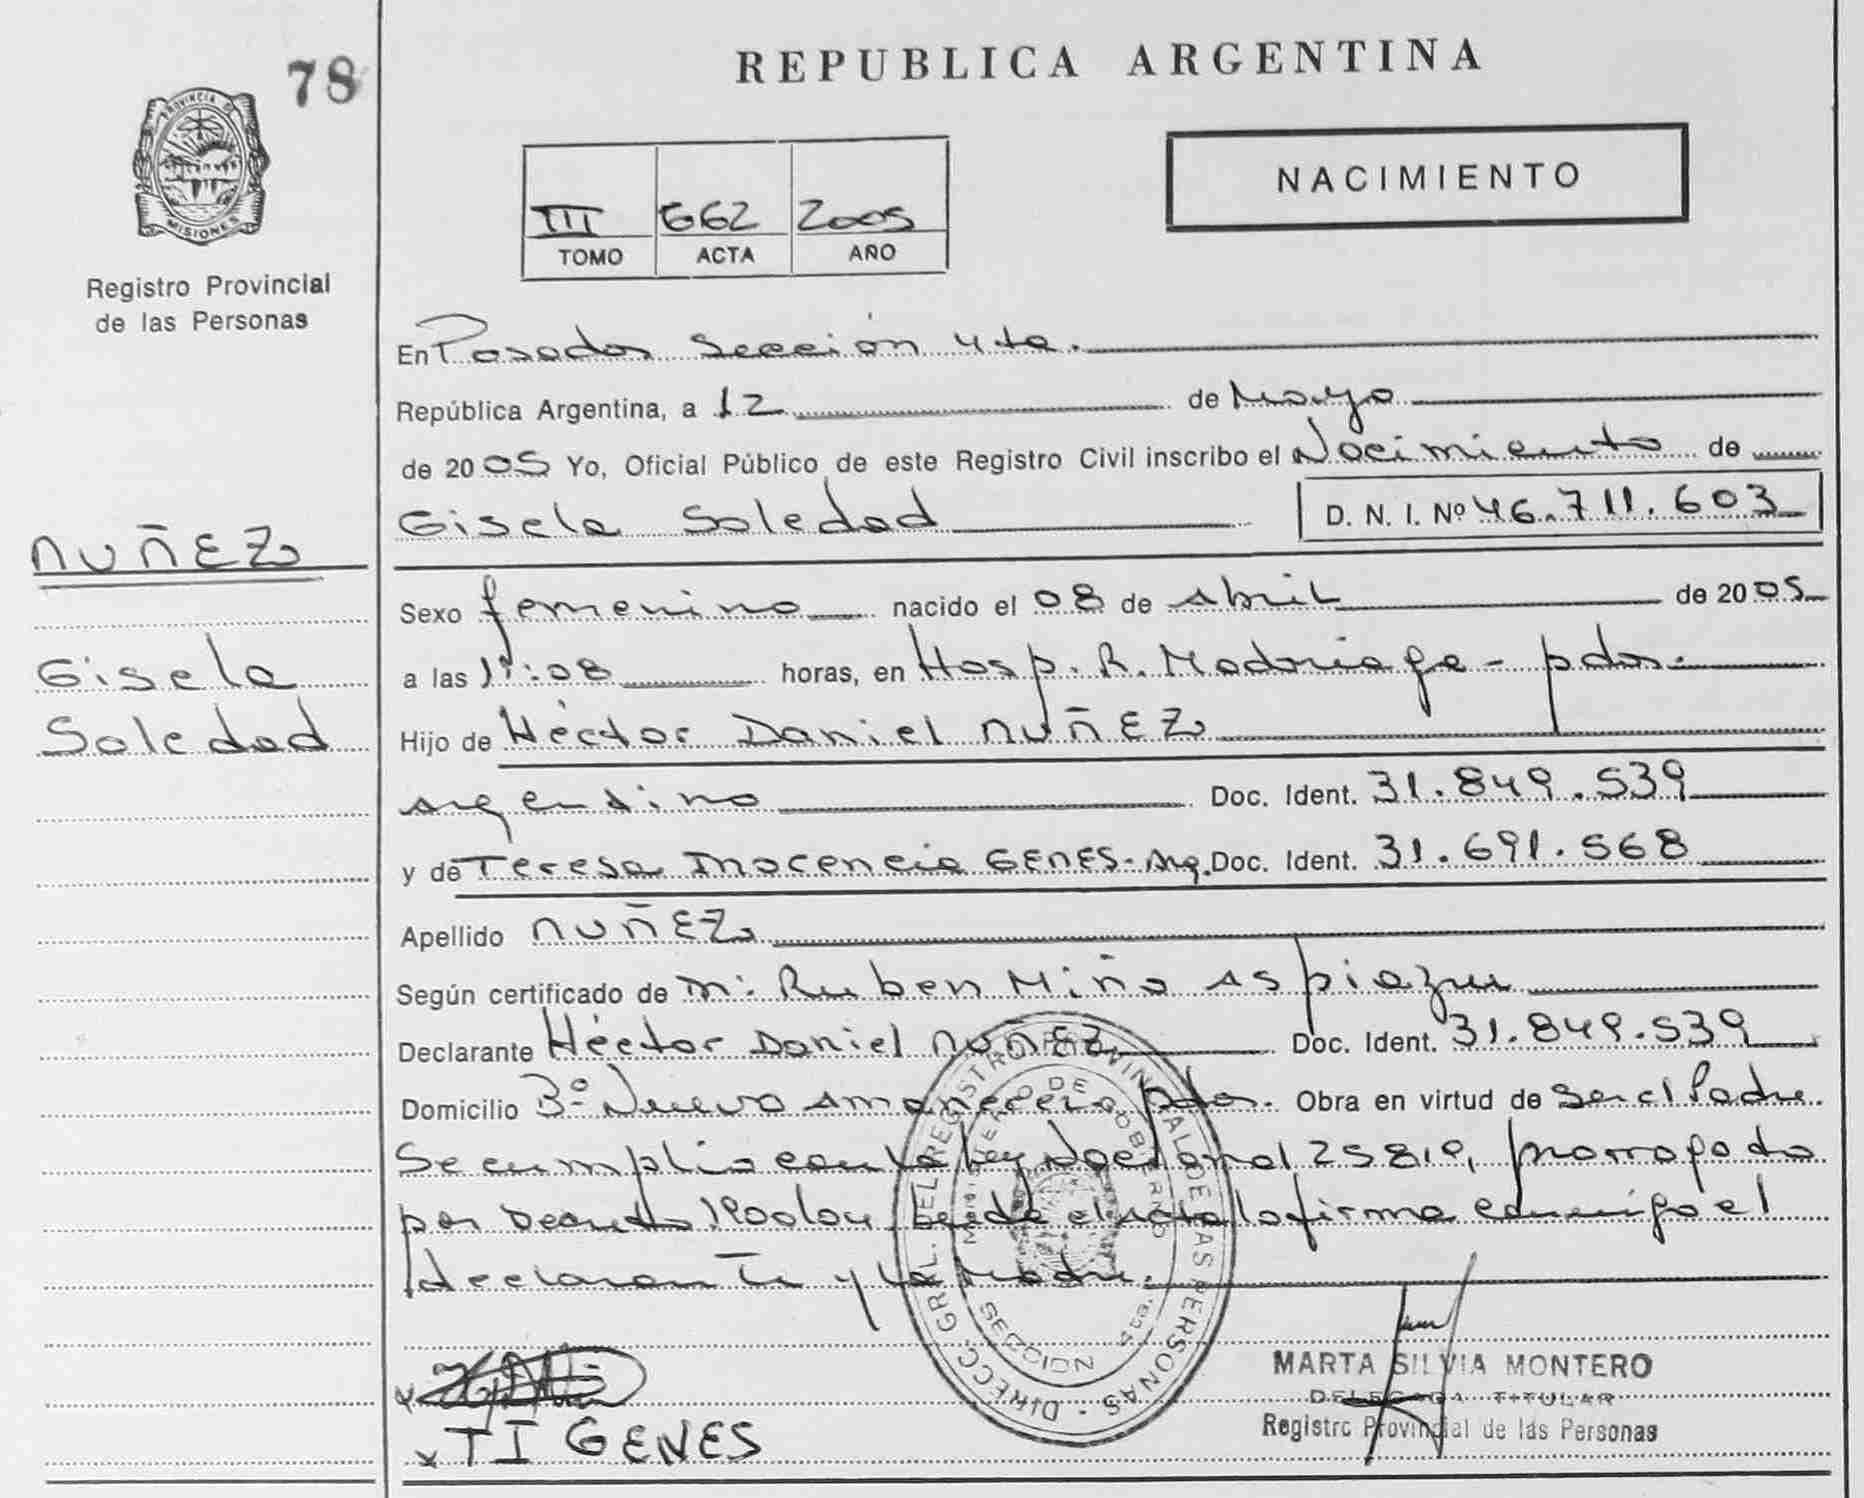 78
REPUBLICA ARGENTINA
PROVINCIA DE
MISIONES
Registro Provincial
de las Personas
NACIMIENTO
III 662 2005
TOMO ACTA AÑO
En Posadas Sección 4ta.
República Argentina, a 12 de Mayo
de 2005 Yo, Oficial Público de este Registro Civil inscribo el Nacimiento de
Gisela Soledad D. N. I. Nº 46.711.603
NUÑEZ
Gisela
Soledad
Sexo femenino nacido el 08 de Abril de 2005
a las horas, en Hosp. R. Madariaga - pdas.
Hijo de Héctor Daniel NUÑEZ
argentino Doc. Ident. 31.849.539
y de Teresa Inocencia GENES - Arg. Doc. Ident. 31.691.568
Apellido NUÑEZ
Según certificado de M: Ruben Miño Aspiazu
Declarante Héctor Daniel NUÑEZ Doc. Ident. 31.849.539
Domicilio Bº Nuevo Amanecer pdas. Obra en virtud de Ser el Padre.
Se cumplio con la ley Nacional 25819, prorrogada
por Decreto la firma conmigo el
declarante y la Madre.
DIRECC. GRAL. DEL REGISTRO PROVINCIAL DE LAS PERSONAS
MINISTERIO DE GOBIERNO
SECCION
TI GENES
MARTA SILVIA MONTERO
DELEGADA TITULAR
Registro Provincial de las Personas